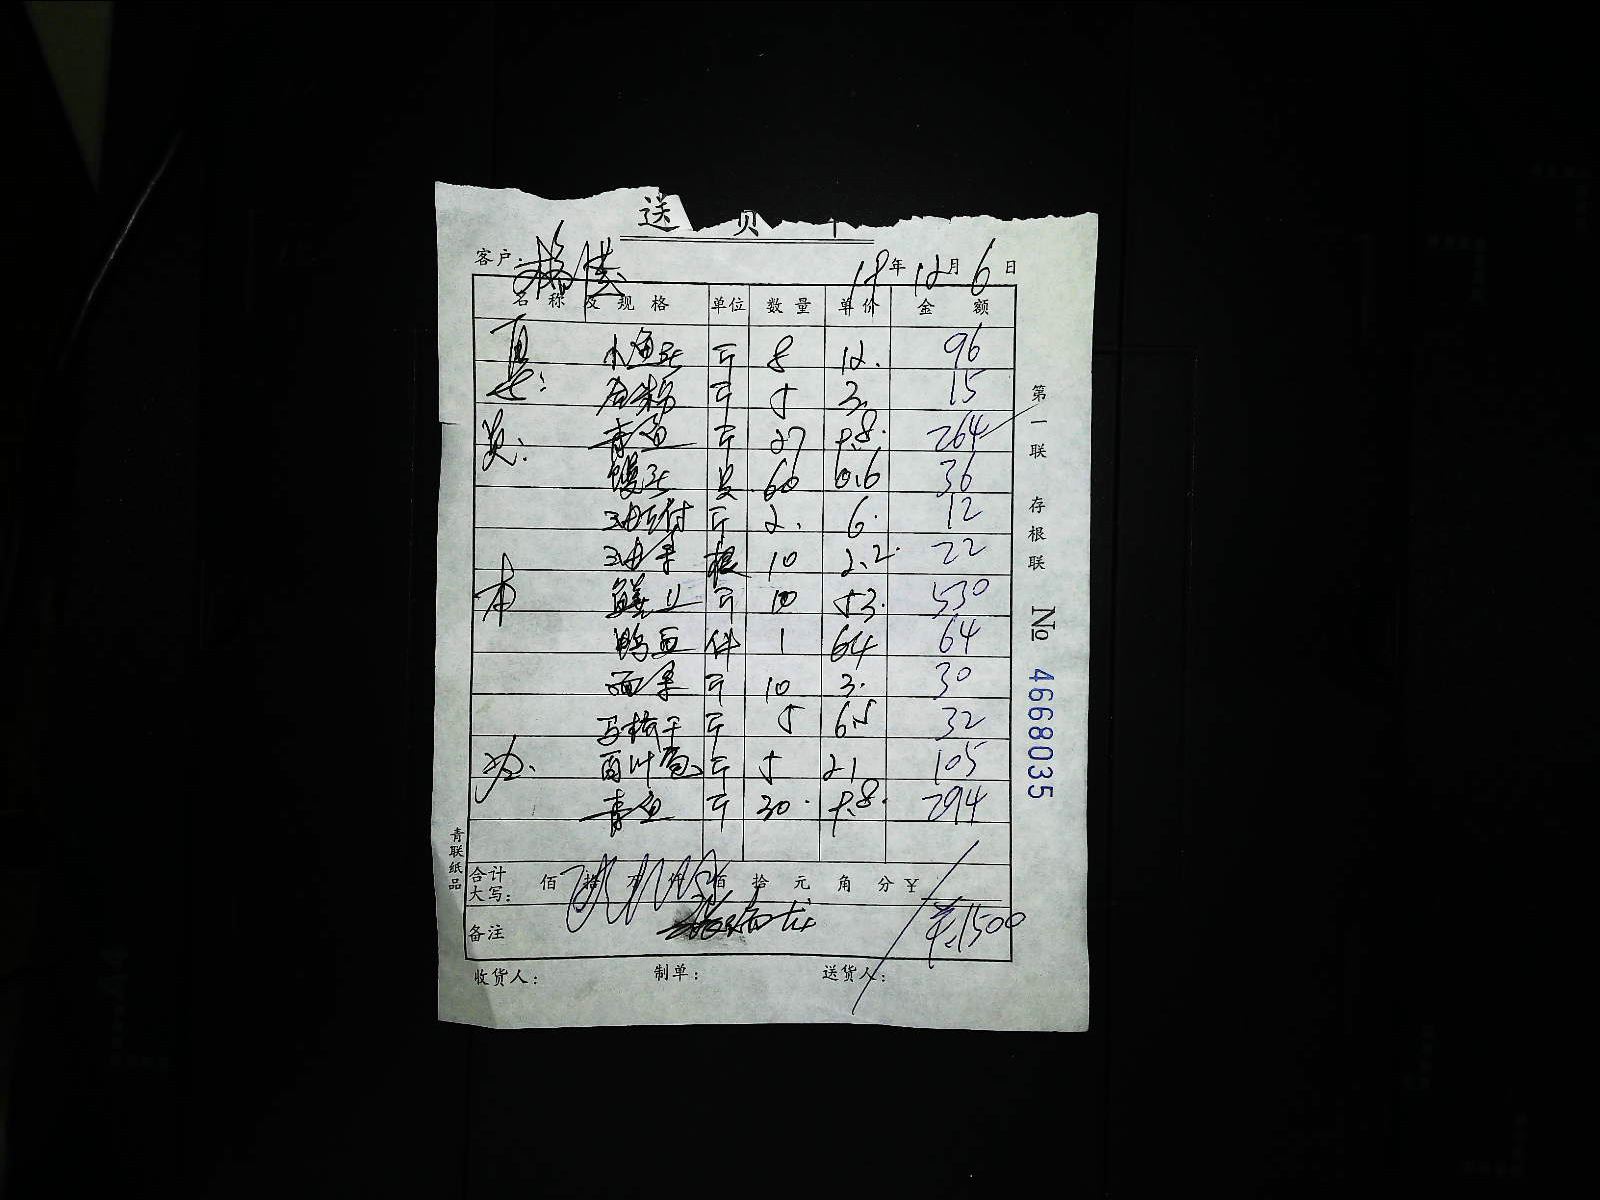 送 货 单
客户: 18年12月6日
名称及规格 单位 数量 单价 金额
小鱼头 斤 8 12. 96
斤 5 3. 15
青鱼 斤 27 9.8. 264
馒头 60 0.6 36
油豆付 斤 2. 6. 12
油条 根 10 2.2. 22
斤 10 53. 530
鸭血 件 1 64 64
面果 斤 10 3. 30
斤 5 6.5 32
百叶包 斤 5 21 105
青鱼 斤 30. 9.8. 294
合计大写: 佰 拾 万 仟 佰 拾 元 角 分 ¥
备注 ¥:1500
收货人: 制单: 送货人:
第一联 存根联 № 4668035
青联纸品